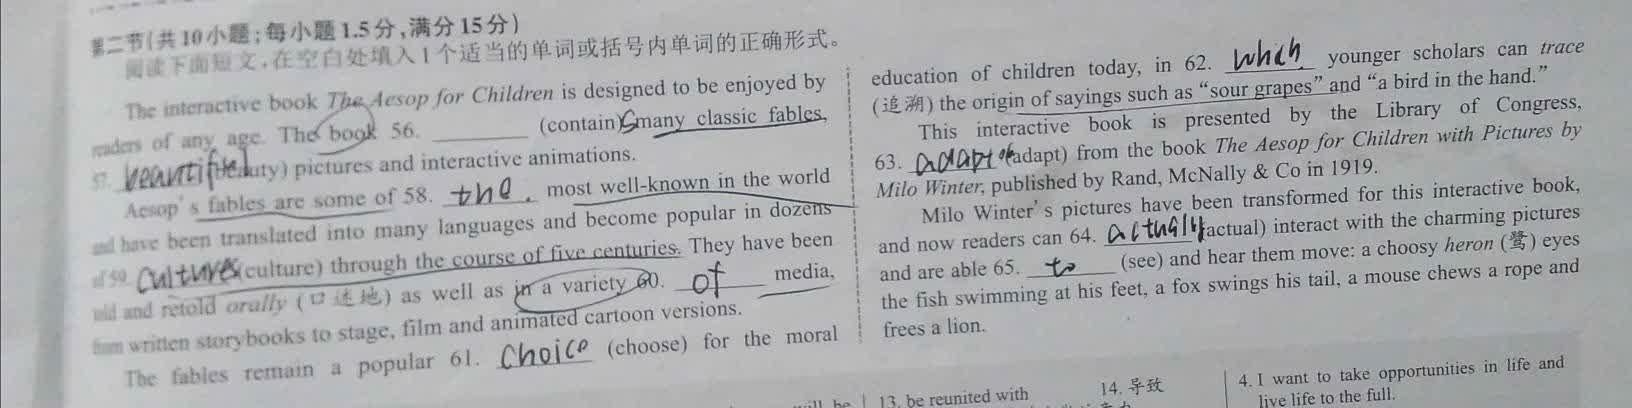 第二节(共10小题;每小题1.5分,满分15分)
阅读下面短文,在空白处填入1个适当的单词或括号内单词的正确形式。
The interactive book The Aesop for Children is designed to be enjoyed by
readers of any age. The book 56. ________ (contain) many classic fables,
57. beautiful (beauty) pictures and interactive animations.
Aesop's fables are some of 58. the most well-known in the world
and have been translated into many languages and become popular in dozens
of 59. cultures (culture) through the course of five centuries. They have been
told and retold orally (口述地) as well as in a variety 60. of media,
from written storybooks to stage, film and animated cartoon versions.
The fables remain a popular 61. Choice (choose) for the moral
education of children today, in 62. which younger scholars can trace
(追溯) the origin of sayings such as "sour grapes" and "a bird in the hand."
This interactive book is presented by the Library of Congress,
63. (adapt) from the book The Aesop for Children with Pictures by
Milo Winter, published by Rand, McNally & Co in 1919.
Milo Winter's pictures have been transformed for this interactive book,
and now readers can 64. actually (actual) interact with the charming pictures
and are able 65. to (see) and hear them move: a choosy heron (鹭) eyes
the fish swimming at his feet, a fox swings his tail, a mouse chews a rope and
frees a lion.
13. be reunited with
14. 导致
4. I want to take opportunities in life and
live life to the full.